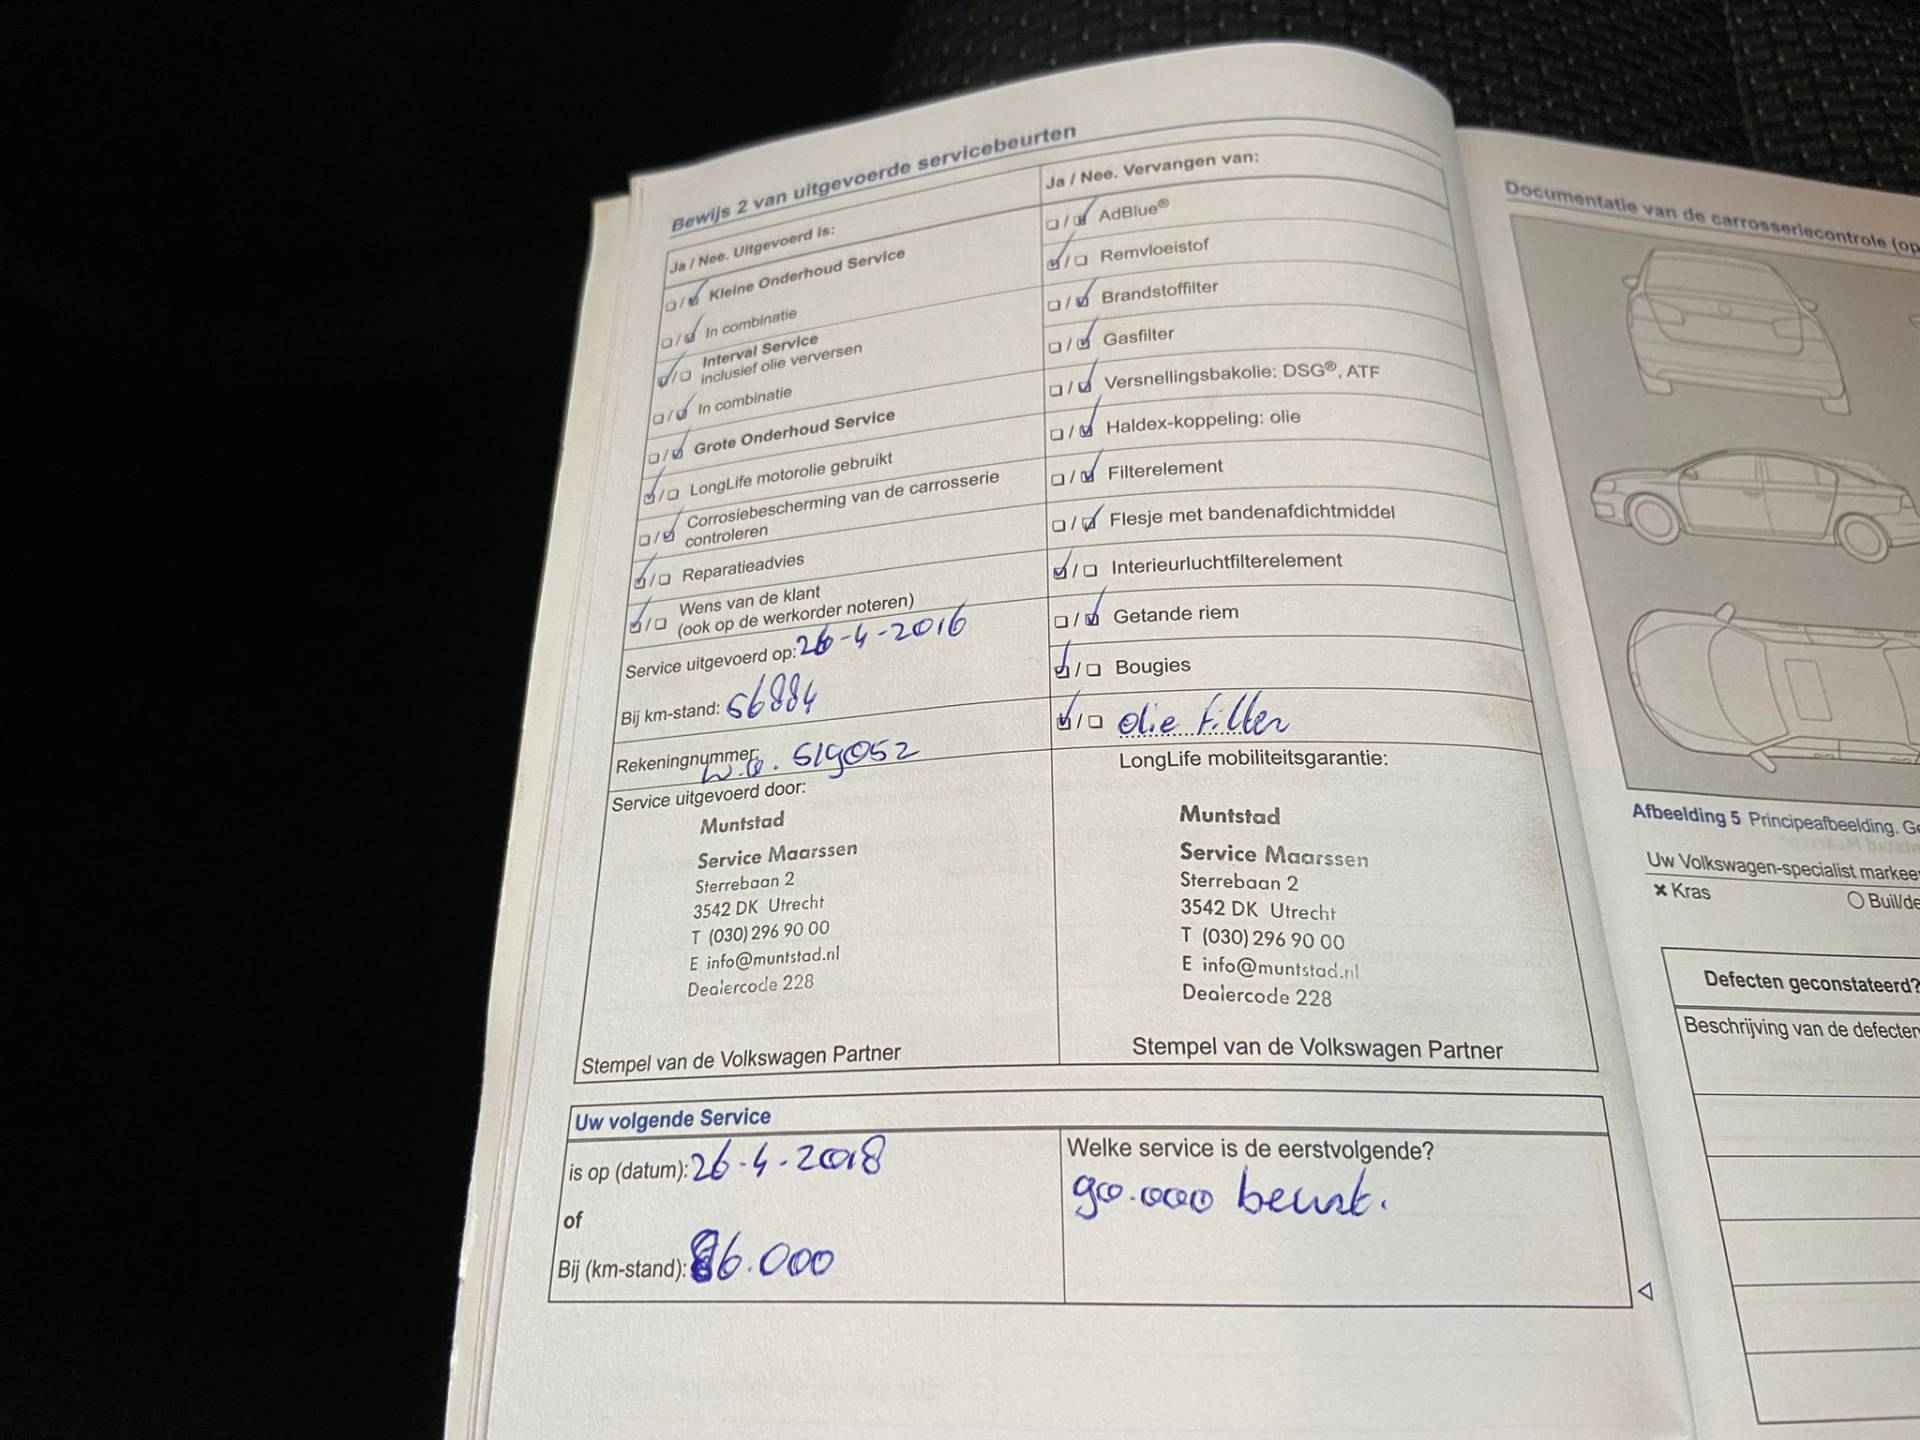 Bewijs 2 van uitgevoerde servicebeurten
Ja / Nee. Uitgevoerd is:
Kleine Onderhoud Service
In combinatie
Interval Service
inclusief olie verversen
In combinatie
Grote Onderhoud Service
LongLife motorolie gebruikt
Corrosiebescherming van de carrosserie
controleren
Reparatieadvies
Wens van de klant
(ook op de werkorder noteren)
Service uitgevoerd op: 26-4-2016
Bij km-stand: 56884
Rekeningnummer: w.o. 519052
Service uitgevoerd door:
Muntstad
Service Maarssen
Sterrebaan 2
3542 DK Utrecht
T (030) 296 90 00
E info@muntstad.nl
Dealercode 228
Stempel van de Volkswagen Partner
Ja / Nee. Vervangen van:
AdBlue®
Remvloeistof
Brandstoffilter
Gasfilter
Versnellingsbakolie: DSG®, ATF
Haldex-koppeling: olie
Filterelement
Flesje met bandenafdichtmiddel
Interieurluchtfilterelement
Getande riem
Bougies
olie filter
LongLife mobiliteitsgarantie:
Muntstad
Service Maarssen
Sterrebaan 2
3542 DK Utrecht
T (030) 296 90 00
E info@muntstad.nl
Dealercode 228
Stempel van de Volkswagen Partner
Uw volgende Service
is op (datum): 26-4-2018
of
Bij (km-stand): 86.000
Welke service is de eerstvolgende?
90.000 beurt.
Documentatie van de carrosseriecontrole (op
Afbeelding 5 Principeafbeelding. Ge
Uw Volkswagen-specialist markee
× Kras
Buil/de
Defecten geconstateerd?
Beschrijving van de defecten